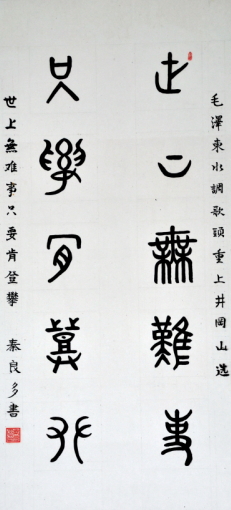 毛澤東水調歌頭重上井岡山选
世上無難事
只要肯登攀
世上無难事只要肯登攀 秦良多書